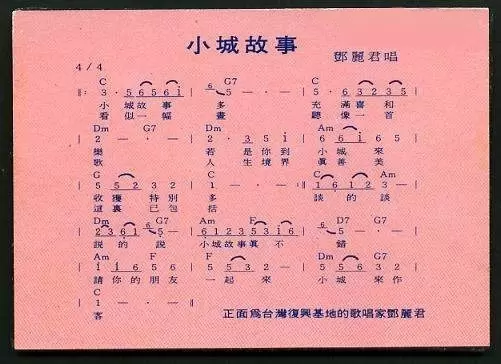 小城故事
鄧麗君唱
4/4
C G7 C
‖: 3 · 5 6 5 6 i | 6 5 — — | 5 · 6 3 2 3 5 |
小城故事 多 充滿喜和
看似一幅 畫 聽像一首
Dm G7 Dm Am
2 — — — | 2 · 3 5 i | 6 6 i 6 5 |
樂 若是你到 小城來
歌 人生境界 真善美
G G7 C C
5 5 2 3 2 | 1 — — · :‖ 1 6 1 2 3 |
收獲特別 多 談的談
這裏已包 括
Dm G7 Am F D7 G7
2 3 6 1 5 | 6 1 2 3 5 3 1 6 | 6 5 — — |
説的説 小城故事眞不 錯
Am F F C Dm G7
1 1 6 5 6 | 1 2 3 2 — | 5 5 6 3 2 |
請你的朋友 一起來 小城來作
C
1 — — — ‖
客
正面為台灣復興基地的歌唱家鄧麗君